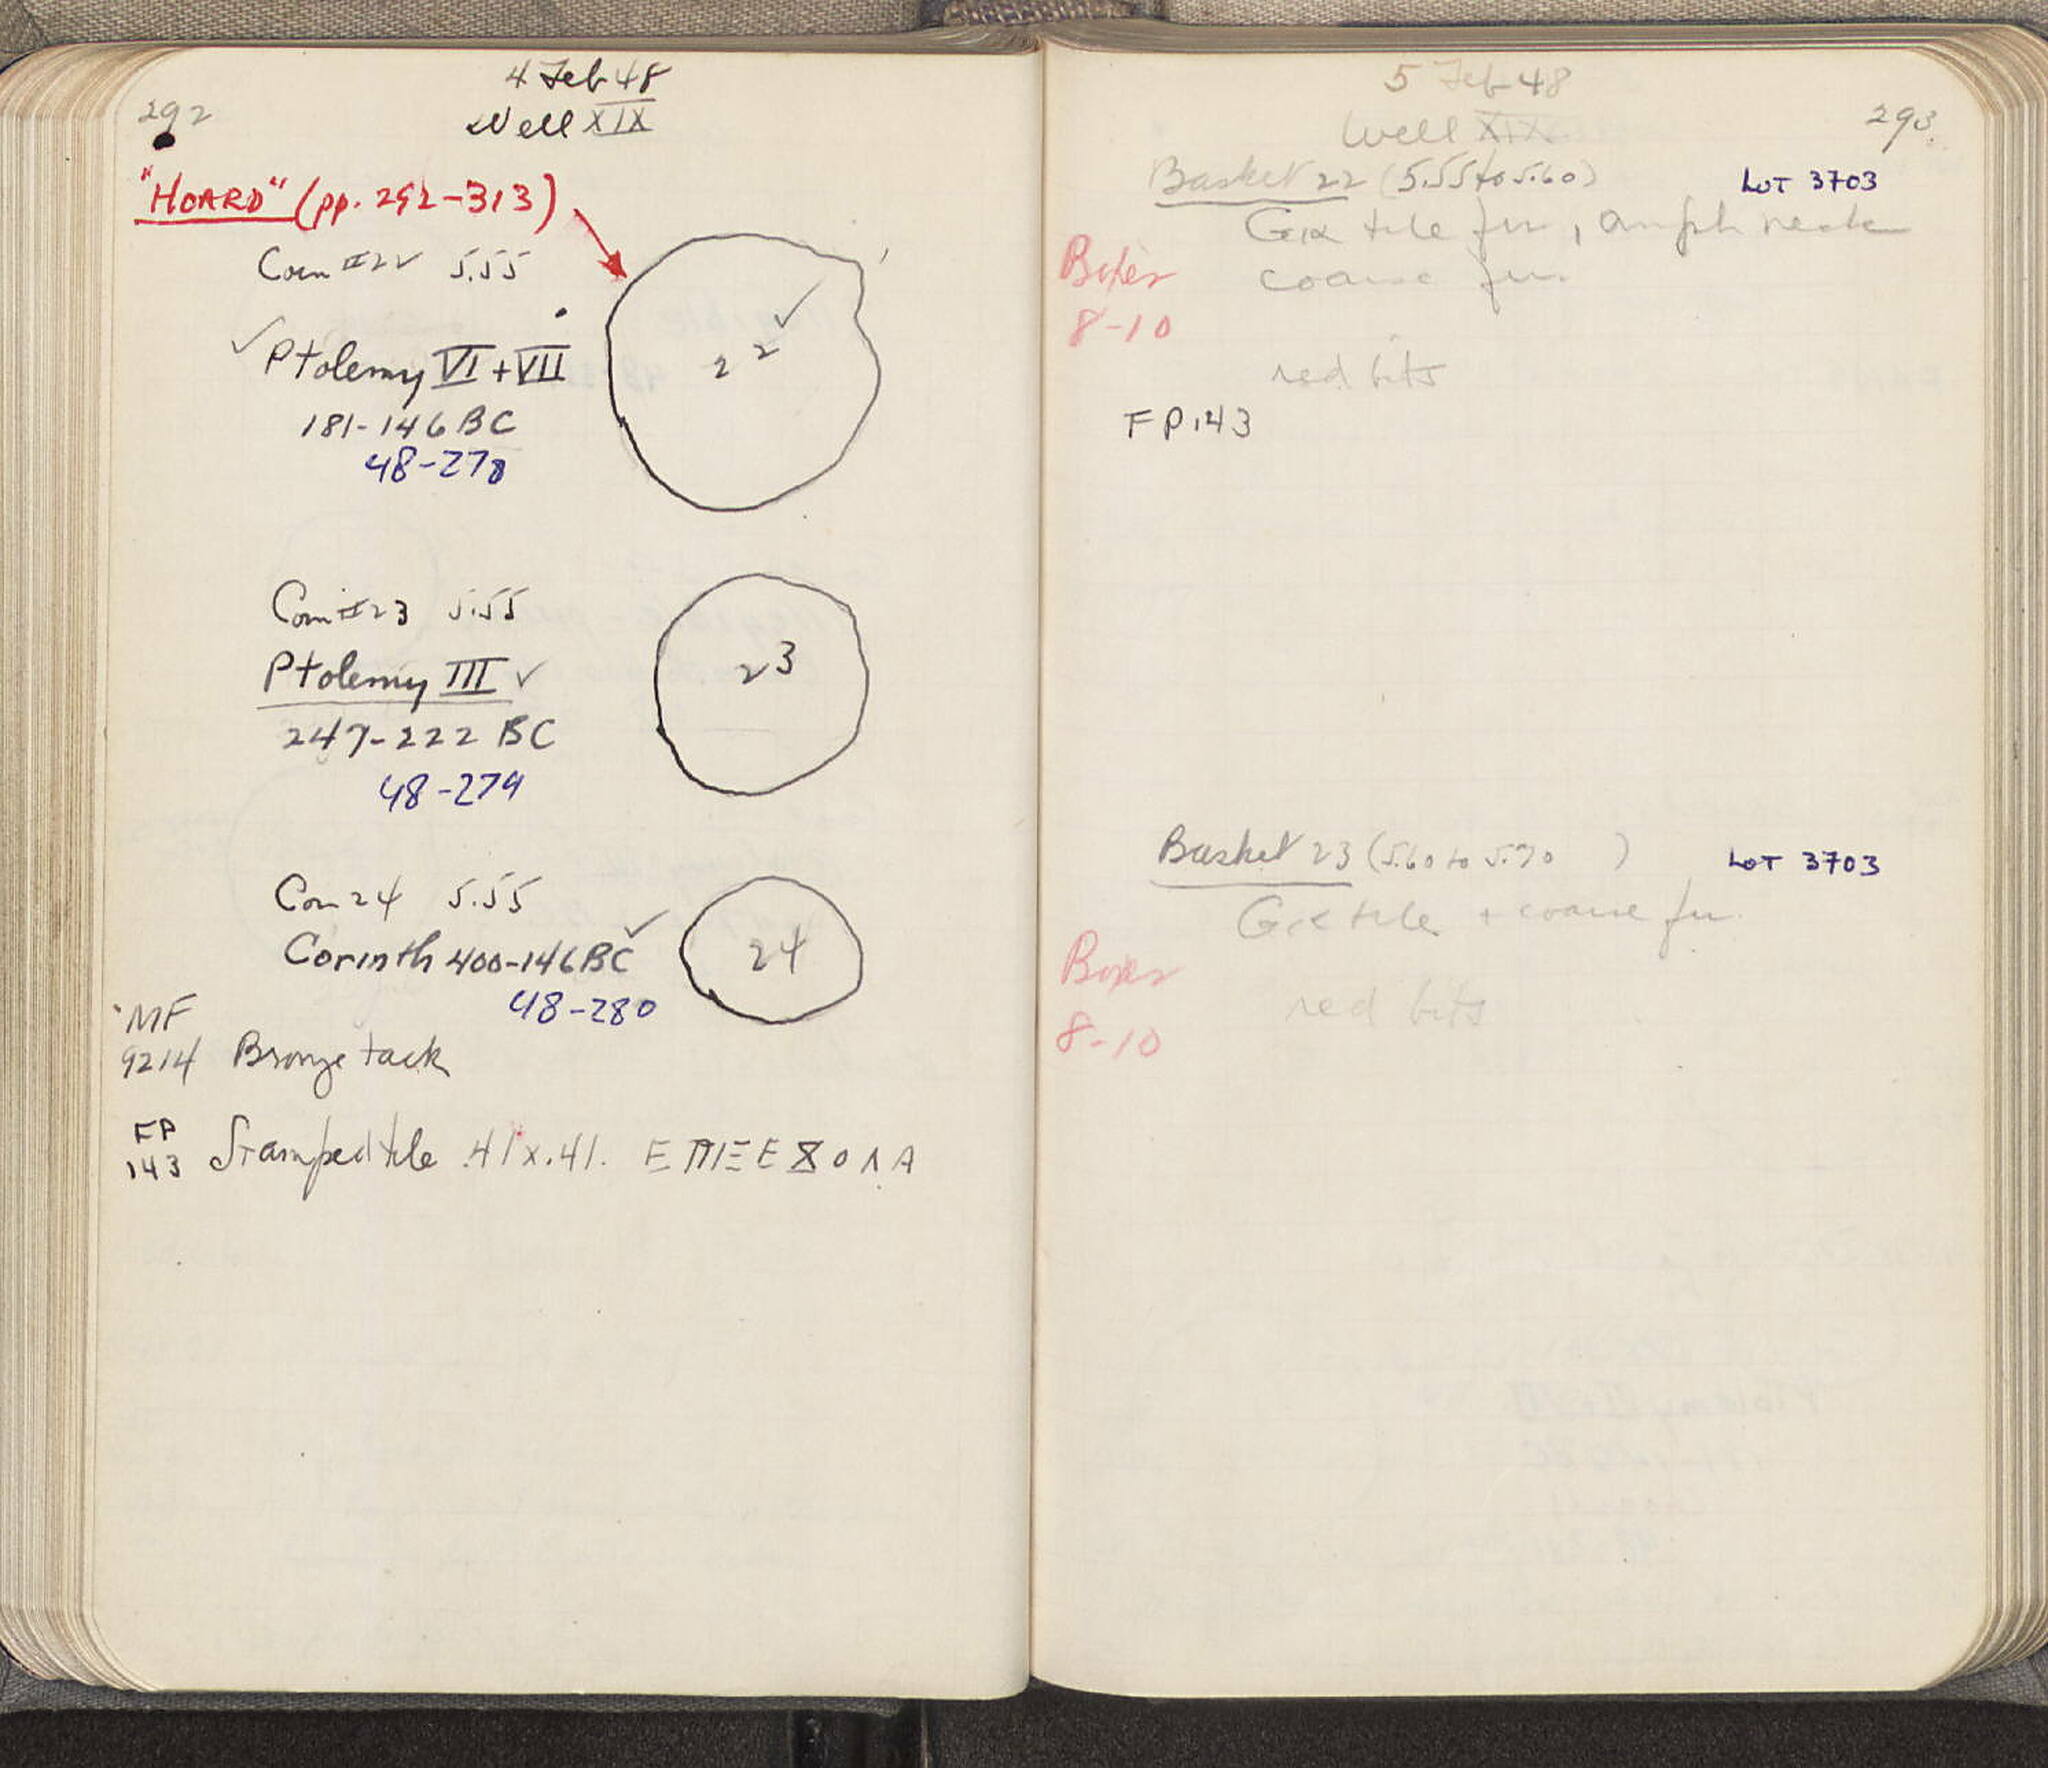 292
4 Feb 48
Well XIX
"HOARD" (pp. 292-313)
Coin #22 5.55
22
Ptolemy VI + VII
181-146 BC
48-278
Coin #23 5.55
23
Ptolemy III
247-222 BC
48-279
Coin 24 5.55
24
Corinth 400-146 BC
48-280
MF
9214 Bronze tack
FP
143 Stamped tile .41 x .41.
5 Feb 48
293
Well XIX
Basket 22 (5.55 to 5.60) LOT 3703
tile fr., amph neck
Boxes coarse fr.
8-10
red bits
FP 143
Basket 23 (5.60 to 5.70 ) LOT 3703
tile + coarse fr.
Boxes
8-10 red bits